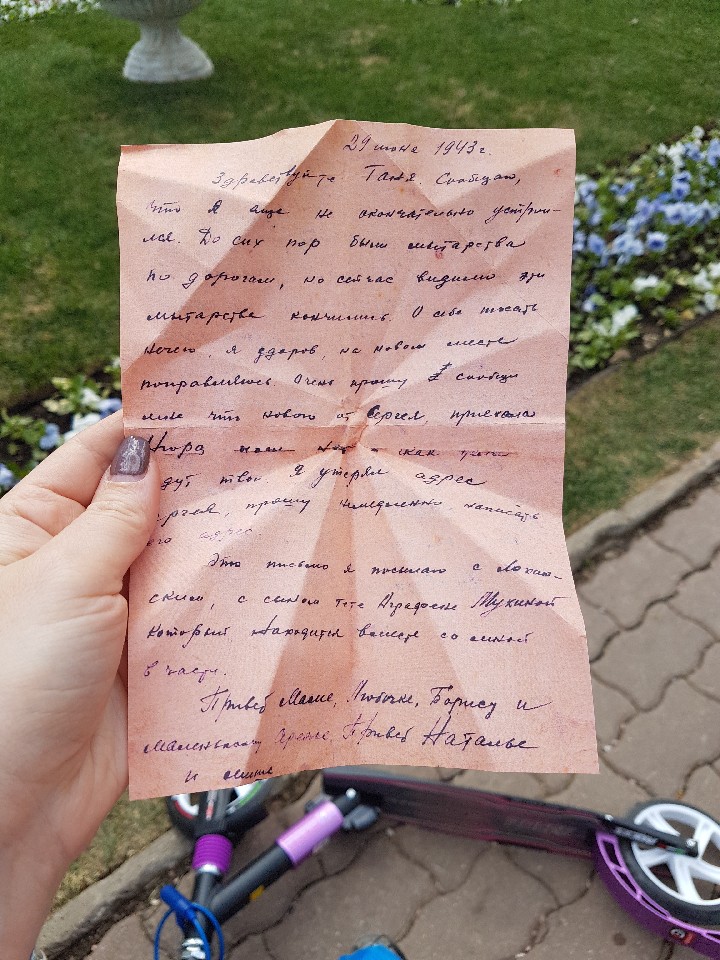 29 июня 1943 г.
Здравствуйте Таня. Сообщаю,
что я еще не окончательно устрои-
лся. До сих пор были мытарства
по дорогам, но сейчас видимо эти
мытарства кончились. О себе писать
нечего, я здоров, на новом месте
поправляюсь. Очень прошу сообщи
мне что нового от Сергея, приехала
и как
дут твои. Я утерял адрес
ргея, прошу немедленно написать
его адрес.
Это письмо я посылаю с
ским, с сыном тети Аграфены Мухиной
который находится вместе со мной
в части.
Привет Маме, Любочке, Борису и
маленькому Сереже, Привет Наталье
и